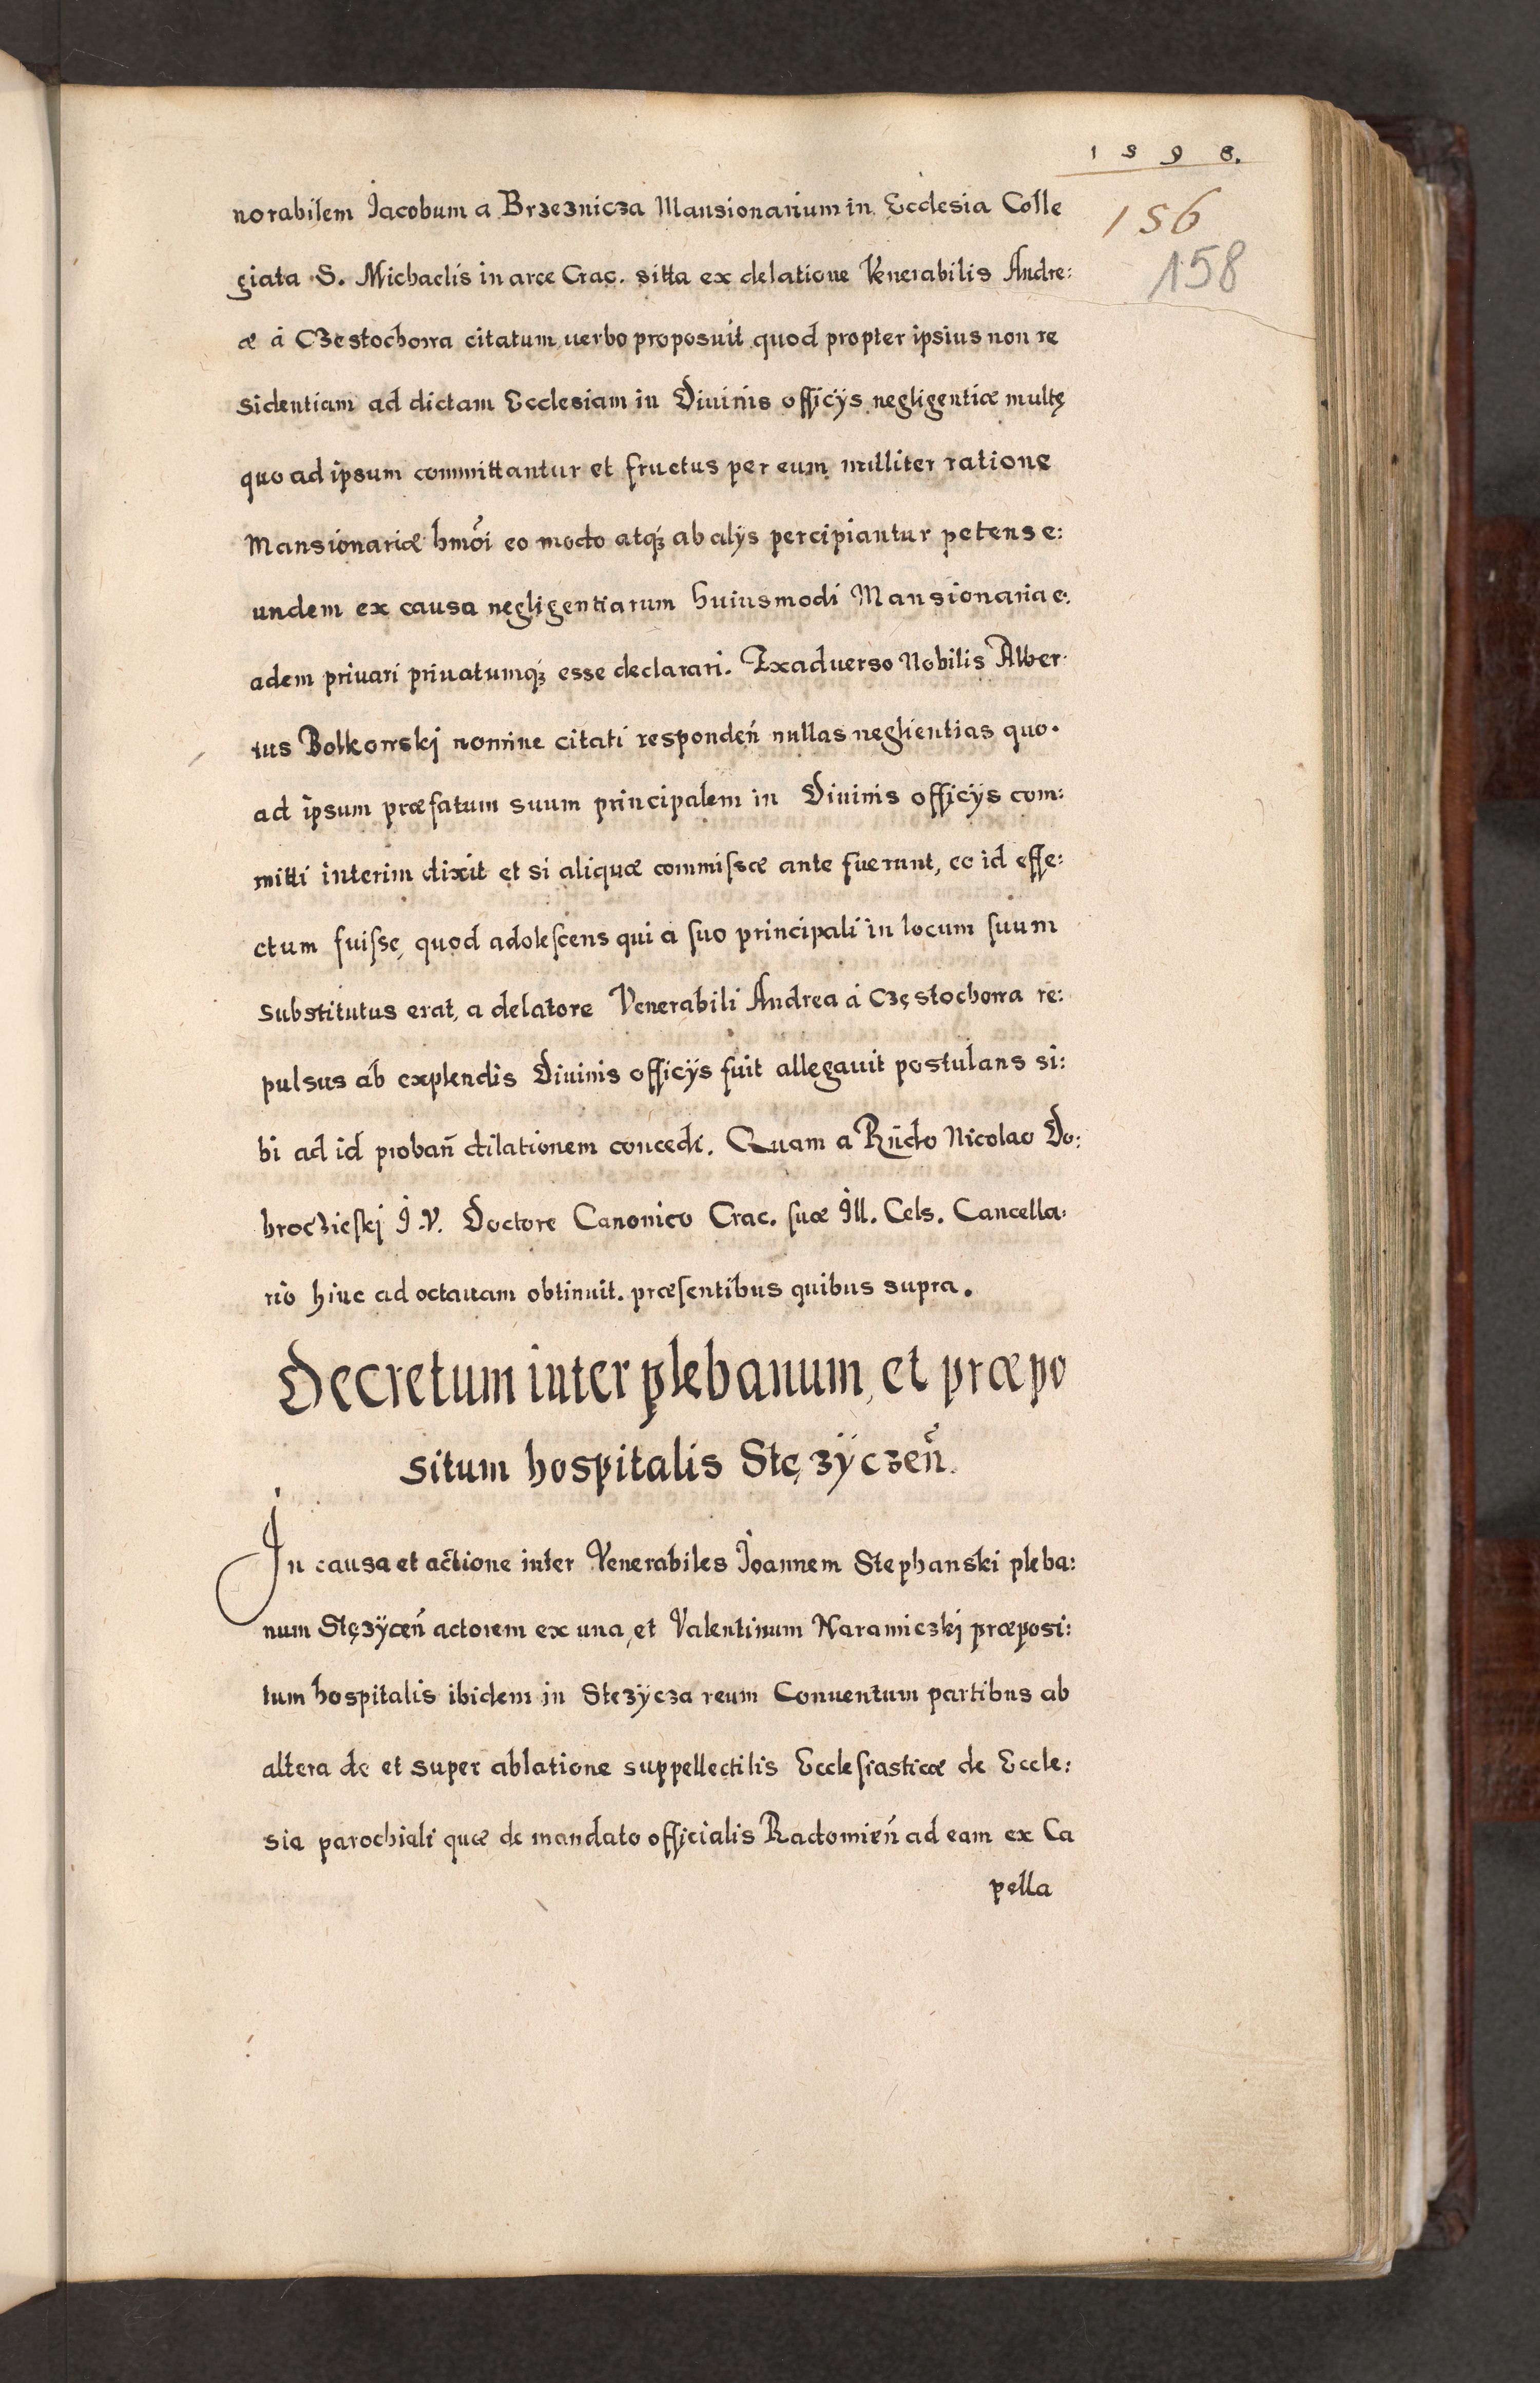 1598.
156
158
norabilem Jacobum a Brzeznicza Mansionarium in Ecclesia Colle
giata S. Michaelis in arce Crac. sitta ex delatione Venerabilis Andre:
æ á Czestochowa citatum, verbo proposuit quod propter ipsius non re
sidentiam ad dictam Ecclesiam in Diuinis officÿs negligentiæ multę
quo ad ipsum committantur et fructus per eum nulliter ratione
Mansionariæ hmōi eo modo atq₃ ab alÿs percipiantur petens e:
undem ex causa negligentiarum huiusmodi Mansionaria e:
adem priuari priuatumq₃ esse declarari. Exaduerso Nobilis Alber:
tus Bolkowskj nomine citati responden̄ nullas neglientias quo.
ad ipsum præfatum suum principalem in Diuinis officÿs com:
mitti interim dixit et si aliquæ commiſsæ ante fuerunt, ec id effe:
ctum fuiſse, quod adoleſcens qui a ſuo principali in locum ſuum
substitutus erat, a delatore Venerabili Andrea á Częstochowa re:
pulsus ab explendis Diuinis officÿs fuit allegauit postulans si:
bi ad id proban̄ dilationem concedi. Quam a Rn̄do Nicolao Do:
broczieſkj J.V. Doctore Canonico Crac. ſuæ Ill. Cels. Cancella:
rio hinc ad octauam obtinuit. præſentibus quibus supra.
Decretum inter plebanum, et præpo
situm hospitalis Stęzÿczen̄
In causa et actione inter Venerabiles Joannem Stephanski pleba:
num Stęzÿcen̄ actorem ex una, et Valentinum Naramiczkj præposi:
tum hospitalis ibidem in Stezÿcza reum Conuentum partibus ab
altera de et super ablatione suppellectilis Eccleſiasticæ de Eccle:
sia parochiali quæ de mandato officialis Radomien̄ ad eam ex Ca
pella